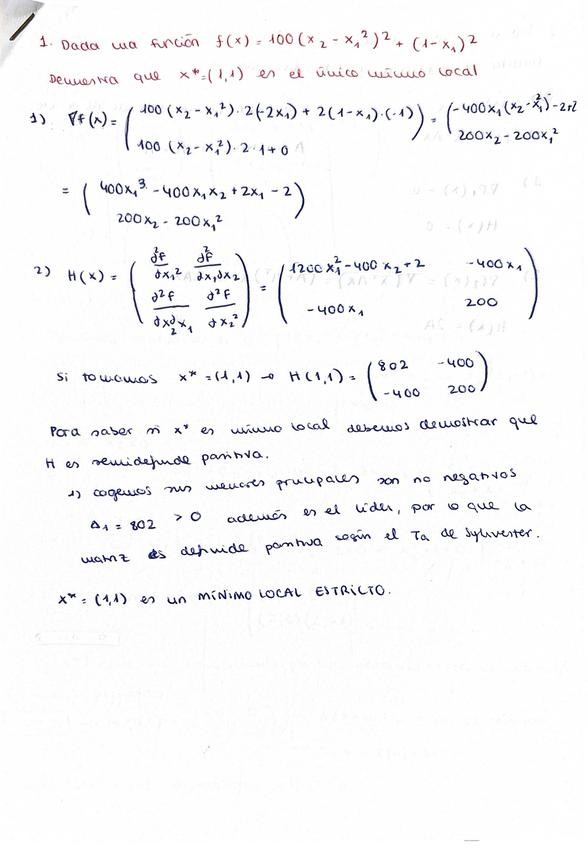 1. Dada una función f(x) = 100(x₂ - x₁²)² + (1-x₁)²
Demuestra que x* = (1,1) es el único mínimo local
1) ∇f(x) = ( 100(x₂ - x₁²)·2(-2x₁) + 2(1-x₁)·(-1) ) = ( -400x₁(x₂-x₁²)
100(x₂ - x₁²)·2·1+0 200x₂ - 200x₁²
= ( 400x₁³ - 400x₁x₂ + 2x₁ - 2 )
200x₂ - 200x₁²
2) H(x) = ( ∂²f/∂x₁² ∂²f/∂x₁∂x₂ ) = ( 1200x₁² - 400x₂ + 2 -400x₁ )
∂²f/∂x₂∂x₁ ∂²f/∂x₂² -400x₁ 200
Si tomamos x* = (1,1) → H(1,1) = ( 802 -400 )
-400 200
Para saber si x* es mínimo local debemos demostrar que
H es semidefinide positiva.
1) cogemos sus menores principales son no negativos
Δ₁ = 802 > 0 además es el líder, por lo que la
matriz es definide positiva según el Ta de Sylvester.
x* = (1,1) es un MÍNIMO LOCAL ESTRICTO.